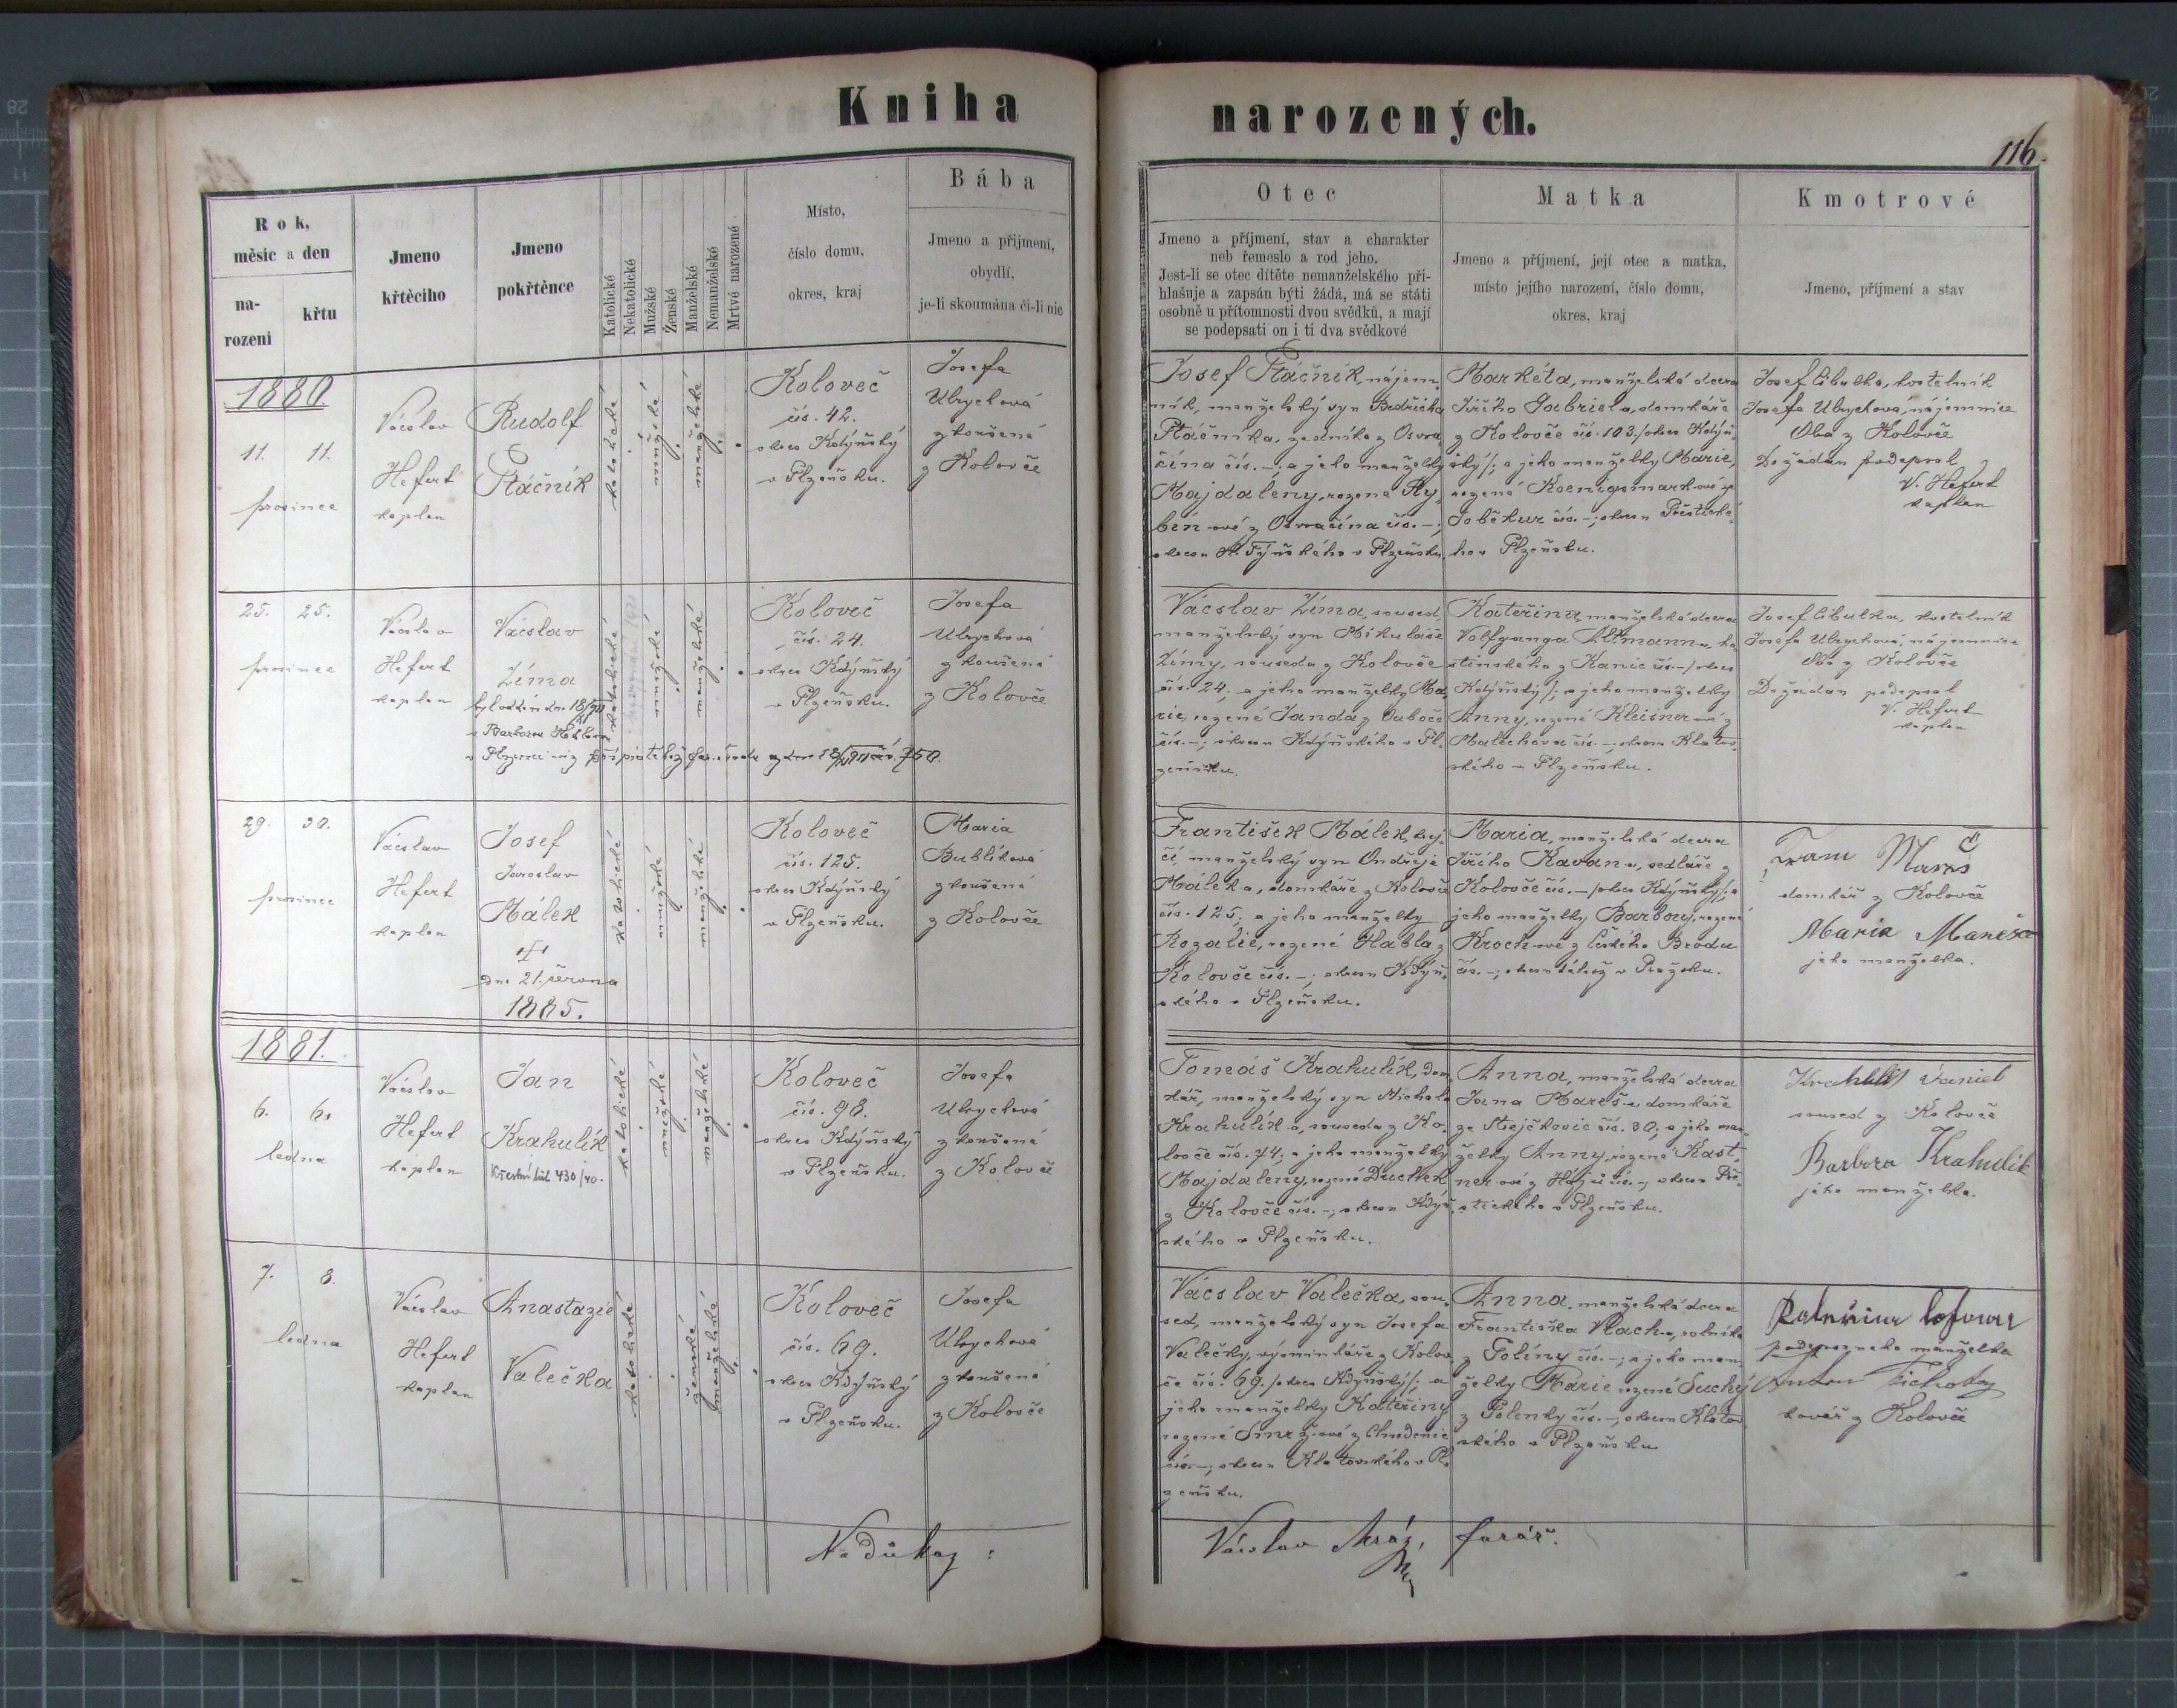 Kniha narozených.
116.
Rok,
měsíc a den
na-
rození
křtu
Jmeno
křtěcího
Jmeno
pokřtěnce
Katolické
Nekatolické
Mužské
Ženské
Manželské
Nemanželské
Mrtvé narozené
Místo,
číslo domu,
okres, kraj
Bába
Jmeno a přijmení,
obydlí,
je-li skoumána či-li nic
Otec
Jmeno a příjmení, stav a charakter
neb řemeslo a rod jeho.
Jest-li se otec dítěte nemanželského při-
hlašuje a zapsán býti žádá, má se státi
osobně u přítomnosti dvou svědků, a mají
se podepsati on i ti dva svědkové
Matka
Jmeno a příjmení, její otec a matka,
místo jejího narození, číslo domu,
okres, kraj
Kmotrové
Jmeno, příjmení a stav
1880
11. 11.
prosince
Václav
Hefert
kaplan
Rudolf
Ptáčník
katolické
mužské
manželské
Koloveč
čís. 42.
okres Kdýňský
v Plzeňsku.
Josefa
Ulrychová
zkoušená
z Kolovče
Josef Ptáčník, nájem-
ník, manželský syn Bedřicha
Ptáčníka, zedníka z Osvra-
čína čís. –; a jeho manželky
Majdaleny, rozené Ry-
bín-ové z Osvračína čís. –;
okresu H. Týnského v Plzeňsku.
Markéta, manželská dcera
Jiřího Gabriel-a, domkáře
z Kolovče čís. 103. /okres Kdýň-
ský/; a jeho manželky Marie,
rozené Koenigsmark-ové ze
Soběkur čís. –; okresu Přeštické-
ho v Plzeňsku.
Josef Cibulka, kostelník
Josefa Ulrychová, nájemnice
Oba z Kolovče
Dožádán podepsal
V. Hefert
kaplan
25. 25.
prosince
Václav
Hefert
kaplan
Václav
Zíma
katolické
mužské
manželské
Koloveč
čís. 24.
okres Kdýňský
v Plzeňsku.
Josefa
Ulrychová
zkoušená
z Kolovče
Václav Zíma, soused,
manželský syn Mikuláše
Zímy, souseda z Kolovče
čís. 24; a jeho manželky Ma-
rie, rozené Janda z Ouboče
čís. –; okresu Kdýňského v Pl-
zeňsku.
Kateřina, manželská dcera
Volfganga Altmann-a, ho-
stinského z Kanic čís. – /okres
Kdýňský/; a jeho manželky
Anny, rozené Kleisner-ové z
Malechova čís. –; okresu Klatov-
ského v Plzeňsku.
Josef Cibulka, kostelník
Josefa Ulrychová, nájemnice
Oba z Kolovče
Dožádán podepsal
V. Hefert
kaplan
29. 30.
prosince
Václav
Hefert
kaplan
Josef
Jaroslav
Málek
dne 21. června
1885.
katolické
mužské
manželské
Koloveč
čís. 125.
okres Kdýňský
v Plzeňsku.
Maria
Bublíková
zkoušená
z Kolovče
František Málek, krej-
čí, manželský syn Ondřeje
Málek-a, domkáře z Kolovče
čís. 125; a jeho manželky
Rozalie, rozené Habla z
Kolovče čís. –; okresu Kdýň-
ského v Plzeňsku.
Maria, manželská dcera
Jiřího Kavan-a, sedláře z
Kolovče čís. – /okres Kdýňský/; a
jeho manželky Barbory, rozené
Kroch-ové z Českého Brodu
čís. –; okresu téhož v Pražsku.
domkář z Kolovče
Maria
jeho manželka.
1881.
6. 6.
ledna
Václav
Hefert
kaplan
Jan
Krahulík
Křestní list 430/40.
katolické
mužské
manželské
Koloveč
čís. 98.
okres Kdýňský
v Plzeňsku.
Josefa
Ulrychová
zkoušená
z Kolovče
Tomáš Krahulík, dom-
kář, manželský syn Michala
Krahulík-a, souseda z Ko-
lovče čís. 74; a jeho manželky
Majdaleny, rozené Duchek
z Kolovče čís. –; okresu Kdýň-
ského v Plzeňsku.
Anna, manželská dcera
Jana Mareš-e, domkáře
ze Stejčkovic čís. 30; a jeho man-
želky Anny, rozené Kast-
ner-ové z Hájů čís. –; okresu Pře-
štického v Plzeňsku.
Daniel
soused z Kolovče
Barbora Krahulik
jeho manželka.
7. 8.
ledna
Václav
Hefert
kaplan
Anastazie
Valečka
katolické
ženské
manželské
Koloveč
čís. 69.
okres Kdýňský
v Plzeňsku.
Josefa
Ulrychová
zkoušená
z Kolovče
Václav Valečka, sou-
sed, manželský syn Josefa
Valečky, výminkáře z Kolov-
če čís. 69. /okres Kdýňský/; a
jeho manželky Kateřiny
rozené
čís. –; okresu Klatovského v Pl-
zeňsku.
Anna, manželská dcera
Františka Vlach-a, rolníka
z Poliny čís. –; a jeho man-
želky Marie rozené Suchý
z Polenky čís. –; okresu Klatov-
ského v Plzeňsku
podepsaného manželka
Anton
kovář z Kolovče
Na důkaz:
Václav Mráz, farář.